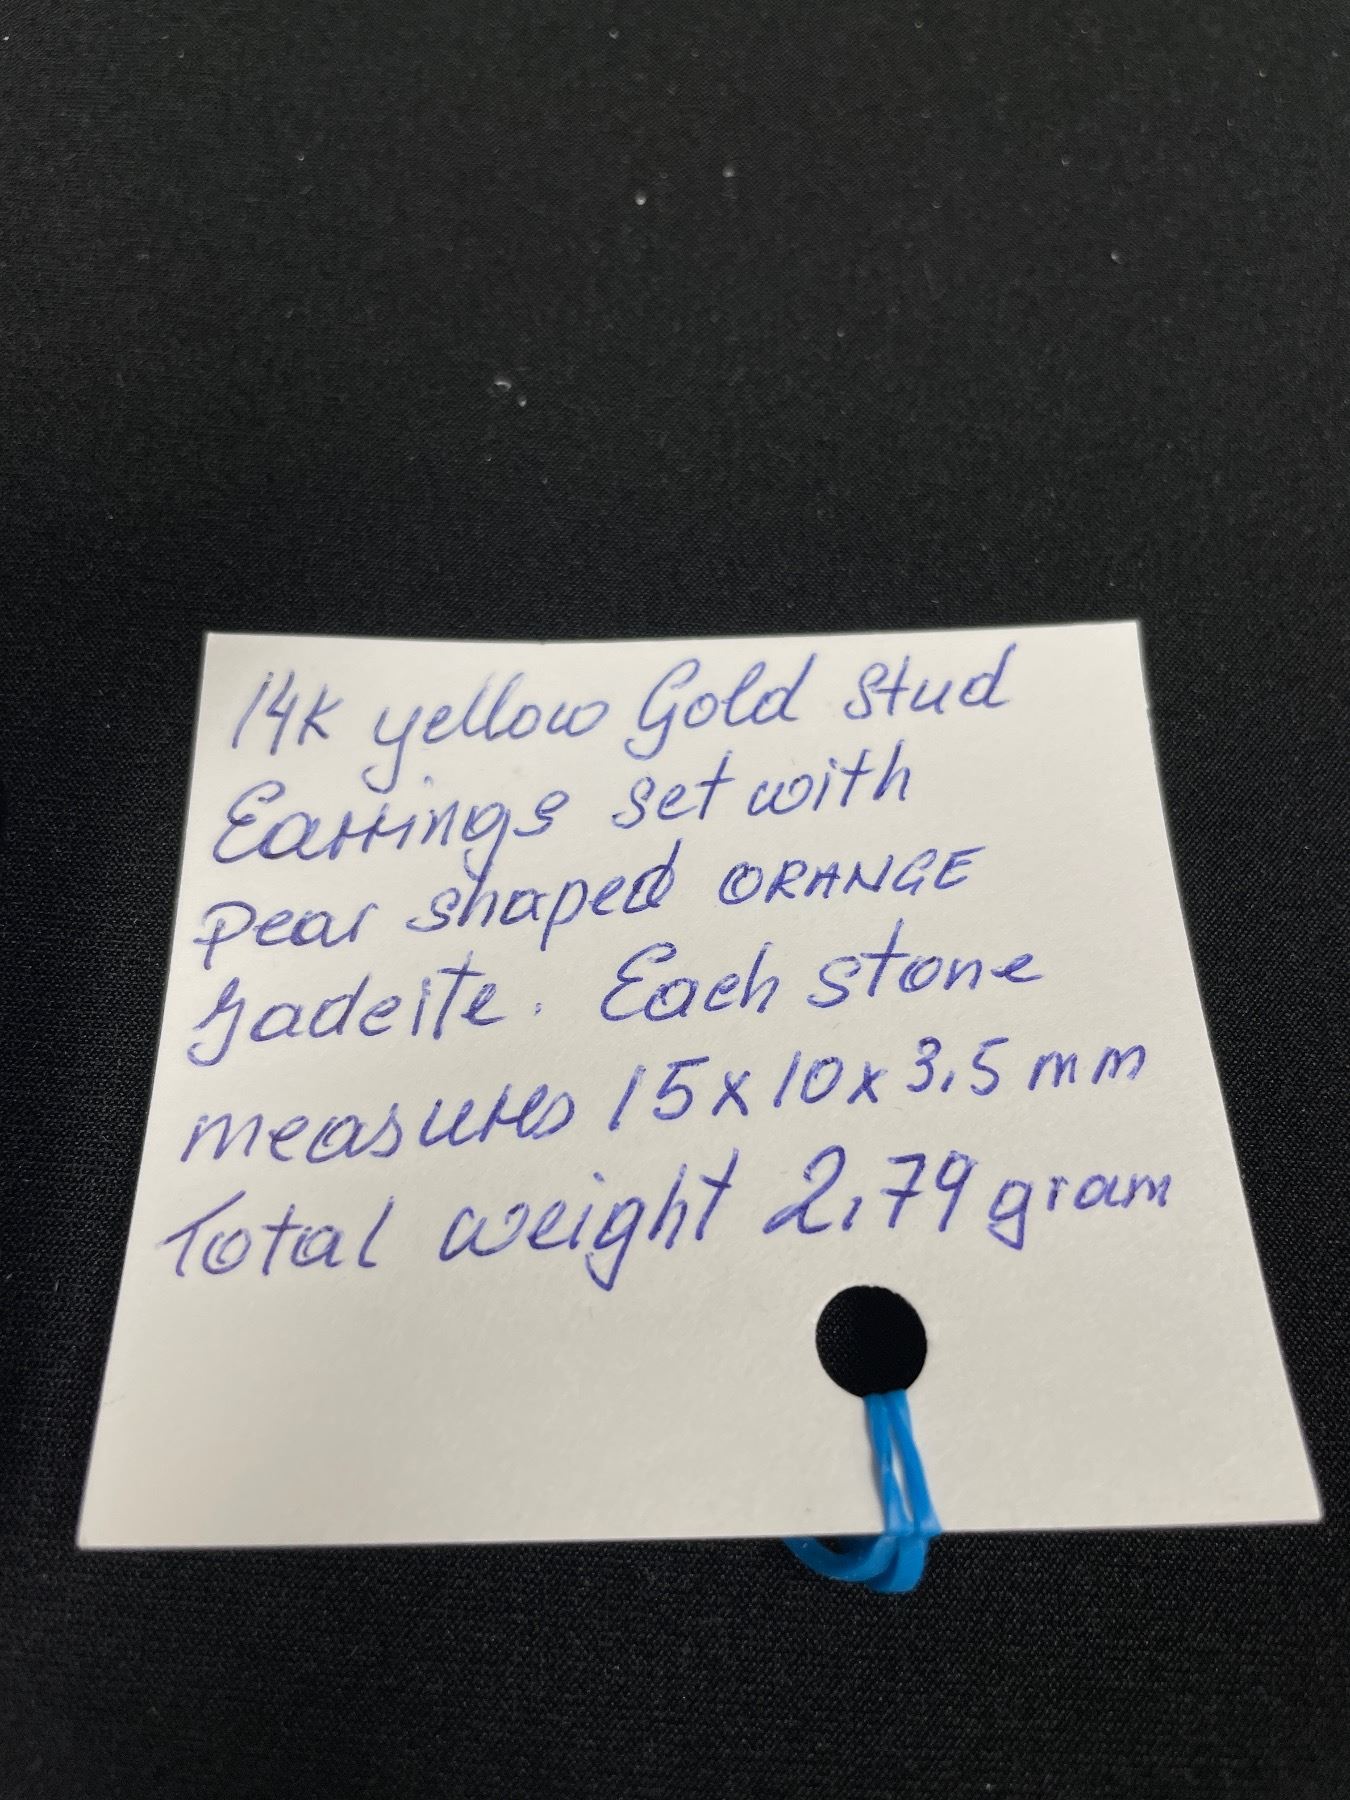 14K yellow Gold stud
Earrings set with
pear shaped ORANGE
Jadeite. Each stone
measures 15x10x3,5 mm
Total weight 2,79 gram